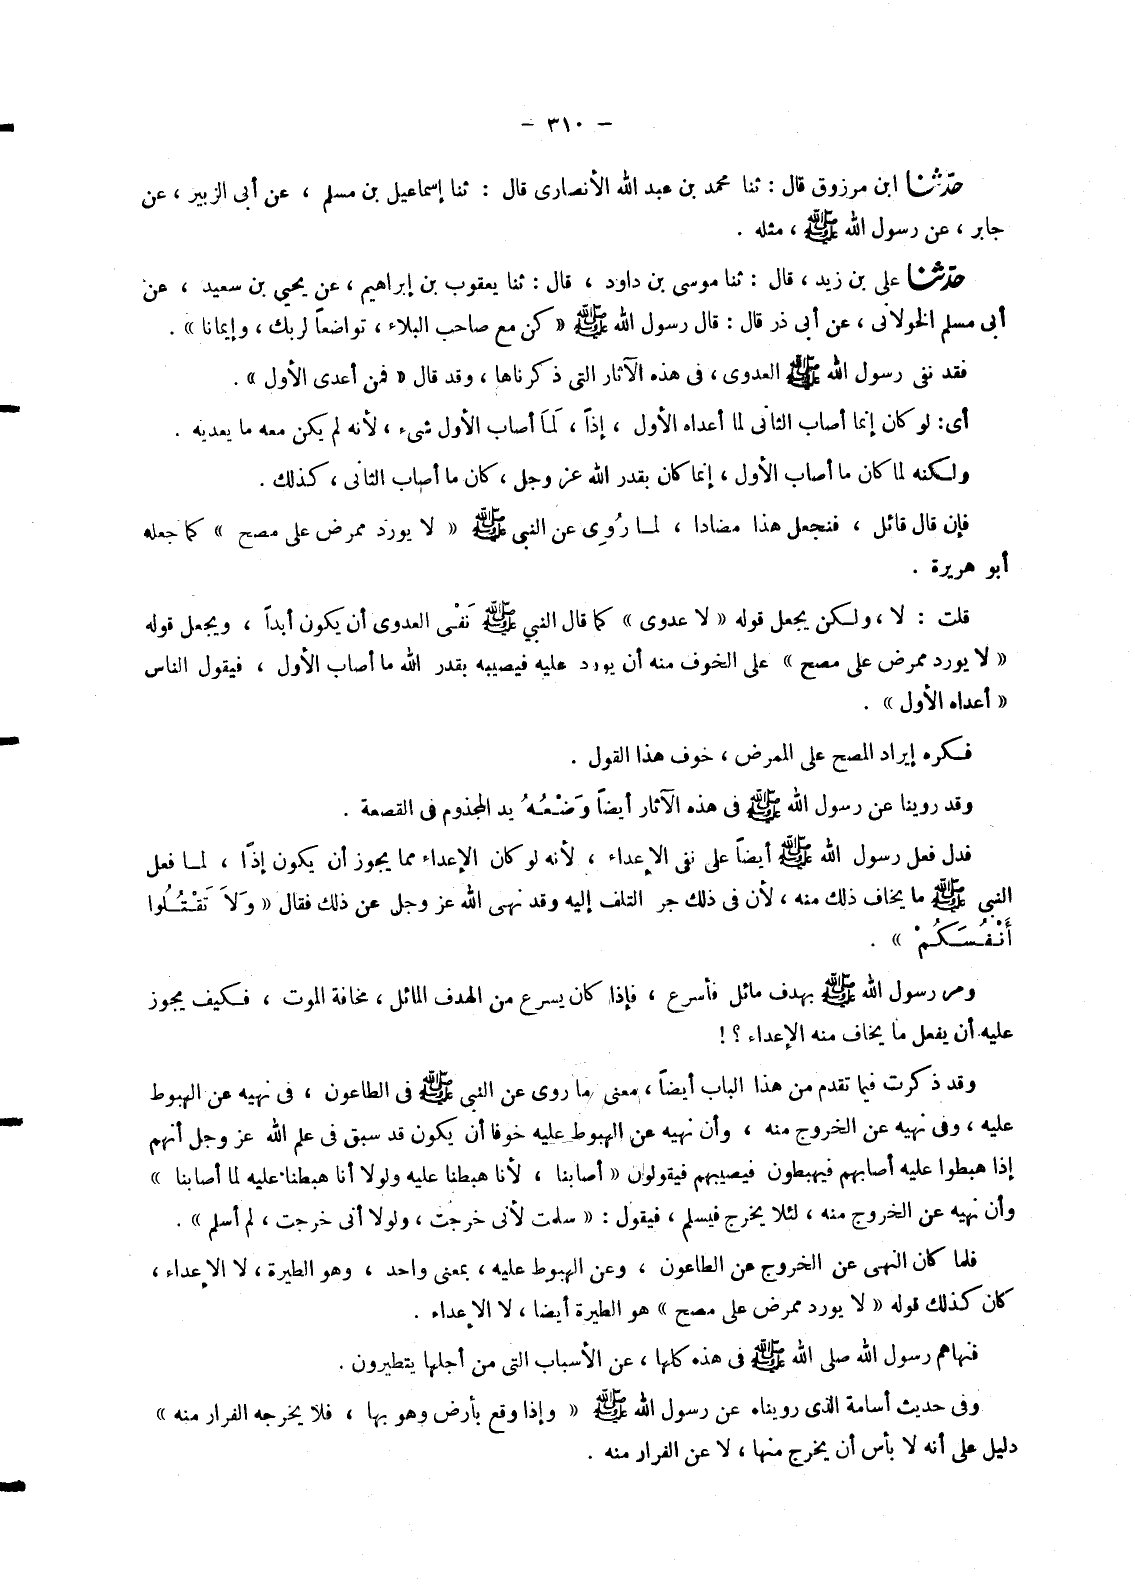 - ٣١٠ -
حدّثنا ابن مرزوق قال : ثنا محمد بن عبد الله الأنصارى قال : ثنا إسماعيل بن مسلم ، عن أبى الزبير ، عن
جابر ، عن رسول الله ﷺ ، مثله .
حدّثنا على بن زيد ، قال : ثنا موسى بن داود ، قال : ثنا يعقوب بن إبراهيم ، عن يحيي بن سعيد ، عن
أبى مسلم الخولانى ، عن أبي ذر قال : قال رسول الله ﷺ « كن مع صاحب البلاء ، تواضعاً لربك ، وإيمانا » .
فقد نفى رسول الله ﷺ العدوى ، فى هذه الآثار التى ذكرناها ، وقد قال « فمن أعدى الأول » .
أى : لو كان إنما أصاب الثانى لما أعداه الأول ، إذاً ، لَمَا أصاب الأول شىء ، لأنه لم يكن معه ما يعديه .
ولـكنه لما كان ما أصاب الأول ، إنما كان بقدر الله عز وجل ، كان ما أصاب الثانى ، كذلك .
فإن قال قائل ، فنجعل هذا مضادا ، لمـا رُوِى عن النبي ﷺ « لا يورد ممرض على مصح » كما جعله
أبو هريرة .
قلت : لا ، ولـكن يجعل قوله « لا عدوى » كما قال النبي ﷺ نَفْى العدوى أن يكون أبداً ، ويجعل قوله
« لا يورد ممرض على مصح » على الخوف منه أن يورد عليه فيصيبه بقدر الله ما أصاب الأول ، فيقول الناس
« أعداه الأول » .
فـكره إيراد المصح على الممرض ، خوف هذا القول .
وقد روينا عن رسول الله ﷺ فى هذه الآثار أيضاً وَضْعُهُ يد المجذوم فى القصعة .
فدل فعل رسول الله ﷺ أيضاً على نفى الإعداء ، لأنه لو كان الإعداء مما يجوز أن يكون إذًا ، لمـا فعل
النبى ﷺ ما يخاف ذلك منه ، لأن فى ذلك جر التلف إليه وقد نهى الله عز وجل عن ذلك فقال « وَلاَ تَقْتُلُوا
أَنْفُسَكُمْ » .
ومر رسول الله ﷺ بهدف مائل فأسرع ، فإذا كان يسرع من الهدف المائل ، مخافة الموت ، فـكيف يجوز
عليه أن يفعل ما يخاف منه الإعداء ؟ !
وقد ذكرت فيما تقدم من هذا الباب أيضاً ، معنى ما روى عن النبى ﷺ فى الطاعون ، فى نهيه عن الهبوط
عليه ، وفى نهيه عن الخروج منه ، وأن نهيه عن الهبوط عليه خوفا أن يكون قد سبق فى علم الله عز وجل أنهم
إذا هبطوا عليه أصابهم فيهبطون فيصيبهم فيقولون « أصابنا ، لأنا هبطنا عليه ولولا أنا هبطنا عليه لما أصابنا »
وأن نهيه عن الخروج منه ، لئلا يخرج فيسلم ، فيقول : « سلمت لأنى خرجت ، ولولا أنى خرجت ، لم أسلم » .
فلما كان النهى عن الخروج من الطاعون ، وعن الهبوط عليه ، بمعنى واحد ، وهو الطيرة ، لا الإعداء ،
كان كذلك قوله « لا يورد ممرض على مصح » هو الطيرة أيضا ، لا الإعداء .
فنهاهم رسول الله صلى الله ﷺ فى هذه كلها ، عن الأسباب التى من أجلها يتطيرون .
وفى حديث أسامة الذى رويناه عن رسول الله ﷺ « وإذا وقع بأرض وهو بها ، فلا يخرجه الفرار منه »
دليل على أنه لا بأس أن يخرج منها ، لا عن الفرار منه .